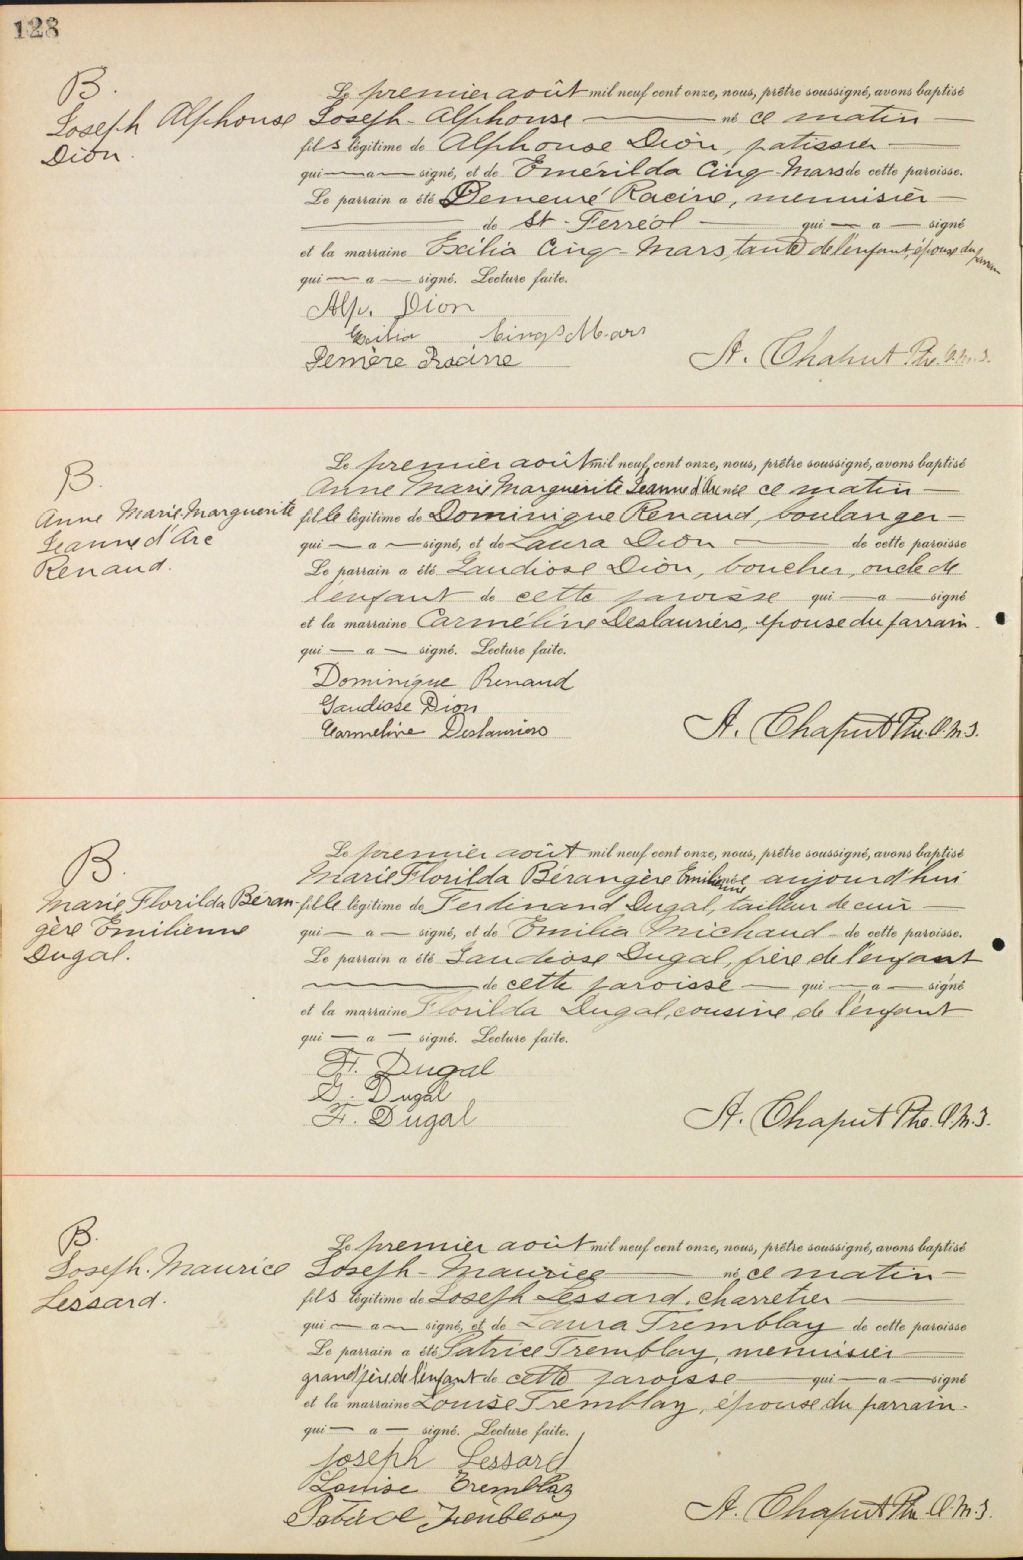 128
B.
Joseph Alphonse
Dion.
Le premier août mil neuf cent onze, nous, prêtre soussigné, avons baptisé
Joseph-Alphonse — né ce matin —
fils légitime de Alphonse Dion, patissier —
qui — a — signé, et de Emérilda Cinq-Mars de cette paroisse.
Le parrain a été Demeuré Racine, menuisier —
— de St-Ferréol — qui — a — signé
et la marraine Exilia Cinq-Mars, tante de l'enfant, épouse du parrain
qui — a — signé. Lecture faite.
Alp. Dion
Exilia Cinq Mars
Racine
A. Chaput Ptre. O.M.I.
B.
Anne Marie Marguerite
Jeanne d'Arc
Renaud.
Le premier août mil neuf cent onze, nous, prêtre soussigné, avons baptisé
Anne Marie Marguerite Jeanne d'Arc née ce matin —
fille légitime de Dominique Renaud, boulanger —
qui — a — signé, et de Laura Dion — de cette paroisse
Le parrain a été Gaudiose Dion, boucher, oncle de
l'enfant de cette paroisse qui — a — signé
et la marraine Carméline Deslauriers, épouse du parrain.
qui — a — signé. Lecture faite.
Dominique Renaud
Gaudiose Dion
Carmeline Deslauriers
A. Chaput Ptre. O.M.I.
B.
Marie Florilda Béran-
gère Émilienne
Dugal.
Le premier août mil neuf cent onze, nous, prêtre soussigné, avons baptisé
Marie Florilda Bérangère Emilienne née aujourd'hui
fille légitime de Ferdinand Dugal, tailleur de cuir —
qui — a — signé, et de Emilia Michaud — de cette paroisse.
Le parrain a été Gaudiose Dugal, frère de l'enfant
— de cette paroisse — qui — a — signé
et la marraine Florilda Dugal, cousine de l'enfant
qui — a — signé. Lecture faite.
F. Dugal
G. Dugal
F. Dugal
A. Chaput Ptre. O.M.I.
B.
Joseph-Maurice
Lessard.
Le premier août mil neuf cent onze, nous, prêtre soussigné, avons baptisé
Joseph-Maurice — né ce matin —
fils légitime de Joseph Lessard, charretier —
qui — a — signé, et de Laura Tremblay de cette paroisse
Le parrain a été Patrice Tremblay, menuisier —
grand'père de l'enfant de cette paroisse — qui — a — signé
et la marraine Louise Tremblay, épouse du parrain.
qui — a — signé. Lecture faite.
Joseph Lessard
Louise Tremblay
Patrice Trembay
A. Chaput Ptre. O.M.I.